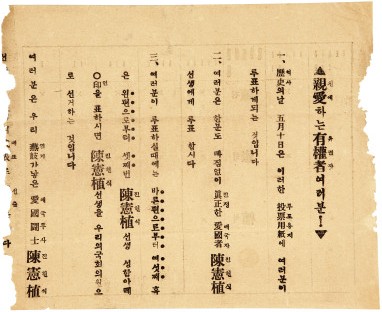 ▲親愛하는 有權者 여러분!▼
一、歷史의날 五月十日은 이러한 投票用紙에 여러분이
투표하게되는 것입니다
二、여러분은 한분도 빠짐없이 眞正한 愛國者 陳憲植
선생에게 투표 합시다
三、여러분이 투표하실때에는 바른편으로부터 여섯째 혹
은 왼편으로부터 셋째번 陳憲植 선생 성함아래
○印을 표하시면 陳憲植선생을 우리의국회의원으
로 선거하는 것입니다
여러분은 우리 燕岐가낳은 愛國鬪士 陳憲植